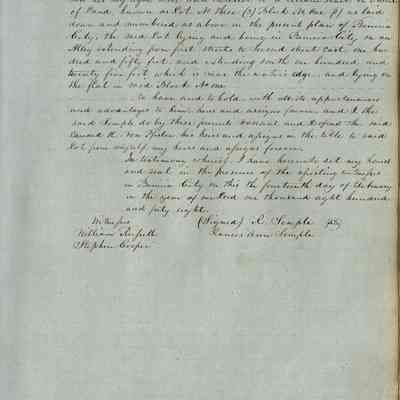 of Land, known as Lot No Three (3) Block No One (1) as laid
down and numbered as above in the present plan of Benicia
City, the said Lot lying and being in Benicia City on an
Alley extending from first Street to Second Street east, one hun
dred and fifty feet, and extending south one hundred and
twenty five feet, which is near the water's edge, and lying on
the flat in said Block No One
To have and to hold, with all its appurtenances
and advantages to him, heirs and assigns forever and I the
said Semple do by these presents warrant and defend the said
Von Pfister his heirs and assigns in the title to said
Lot from myself my heirs and assigns forever.
In testimony whereof I have hereunto set my hand
and seal in the presence of the
in Benicia City on this the fourteenth day of February
in the year of our Lord one thousand eight hundred
and forty eight.
Witnesses (Signed) R. Semple
William Ann Semple
Stephen Cooper